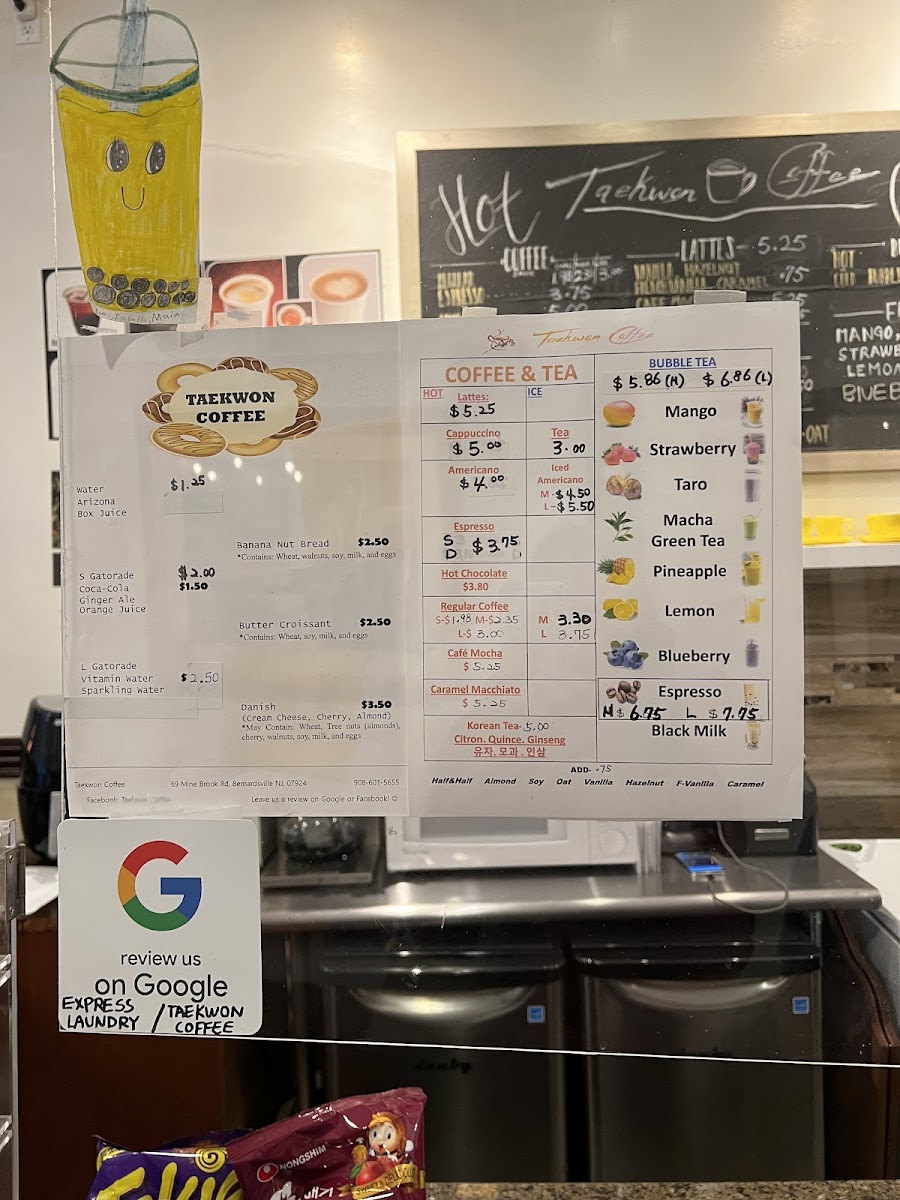 Hot Taekwon Coffee
COFFEE
LATTES - 5.25
ESPRESSO
3.75
VANILLA, HAZELNUT
.75
HOT
MANGO,
STRAWB
LEMO
BLUEB
OAT
TAEKWON
COFFEE
Water $1.25
Arizona
Box Juice
Banana Nut Bread $2.50
*Contains: Wheat, walnuts, soy, milk, and eggs
S Gatorade $2.00
Coca-Cola $1.50
Ginger Ale
Orange Juice
Butter Croissant $2.50
*Contains: Wheat, soy, milk, and eggs
L Gatorade
Vitamin Water $2.50
Sparkling Water
Danish $3.50
(Cream Cheese, Cherry, Almond)
*May Contain: Wheat, Tree nuts (almonds),
cherry, walnuts, soy, milk, and eggs
Taekwon Coffee 69 Mine Brook Rd, Bernardsville NJ, 07924 908-601-5655
Facebook: Leave us a review on Google or Facebook! ☺
Taekwon Coffee
COFFEE & TEA
HOT
Lattes:
$5.25
ICE
Cappuccino
$5.00
Tea
3.00
Americano
$4.00
Iced
Americano
M - $4.50
L - $5.50
Espresso
S
D $3.75
Hot Chocolate
$3.80
Regular Coffee
S-$1.98 M-$2.35
L-$ 3.00
M 3.30
L 3.75
Café Mocha
$5.25
Caramel Macchiato
$ 5.25
Korean Tea- 5.00
Citron. Quince. Ginseng
유자. 모과. 인삼
BUBBLE TEA
$5.86 (M) $6.86 (L)
Mango
Strawberry
Taro
Macha
Green Tea
Pineapple
Lemon
Blueberry
Espresso
M $6.75 L $7.75
Black Milk
ADD- .75
Half&Half Almond Soy Oat Vanilla Hazelnut F-Vanilla Caramel
review us
on Google
EXPRESS
LAUNDRY / TAEKWON
COFFEE
danby
NONGSHIM